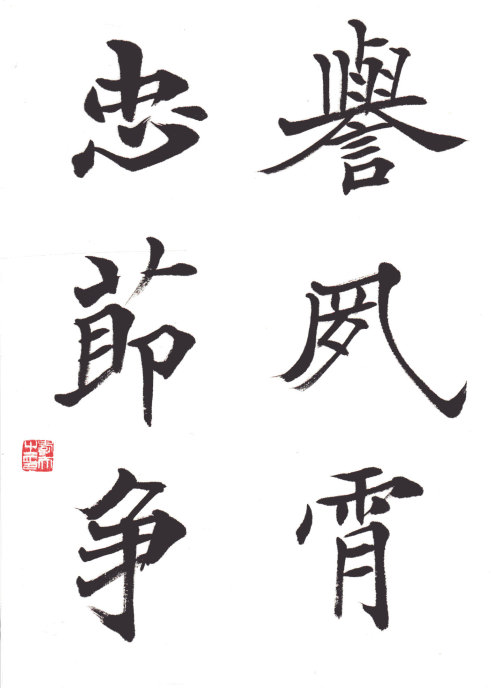 譽夙霄
忠莭争